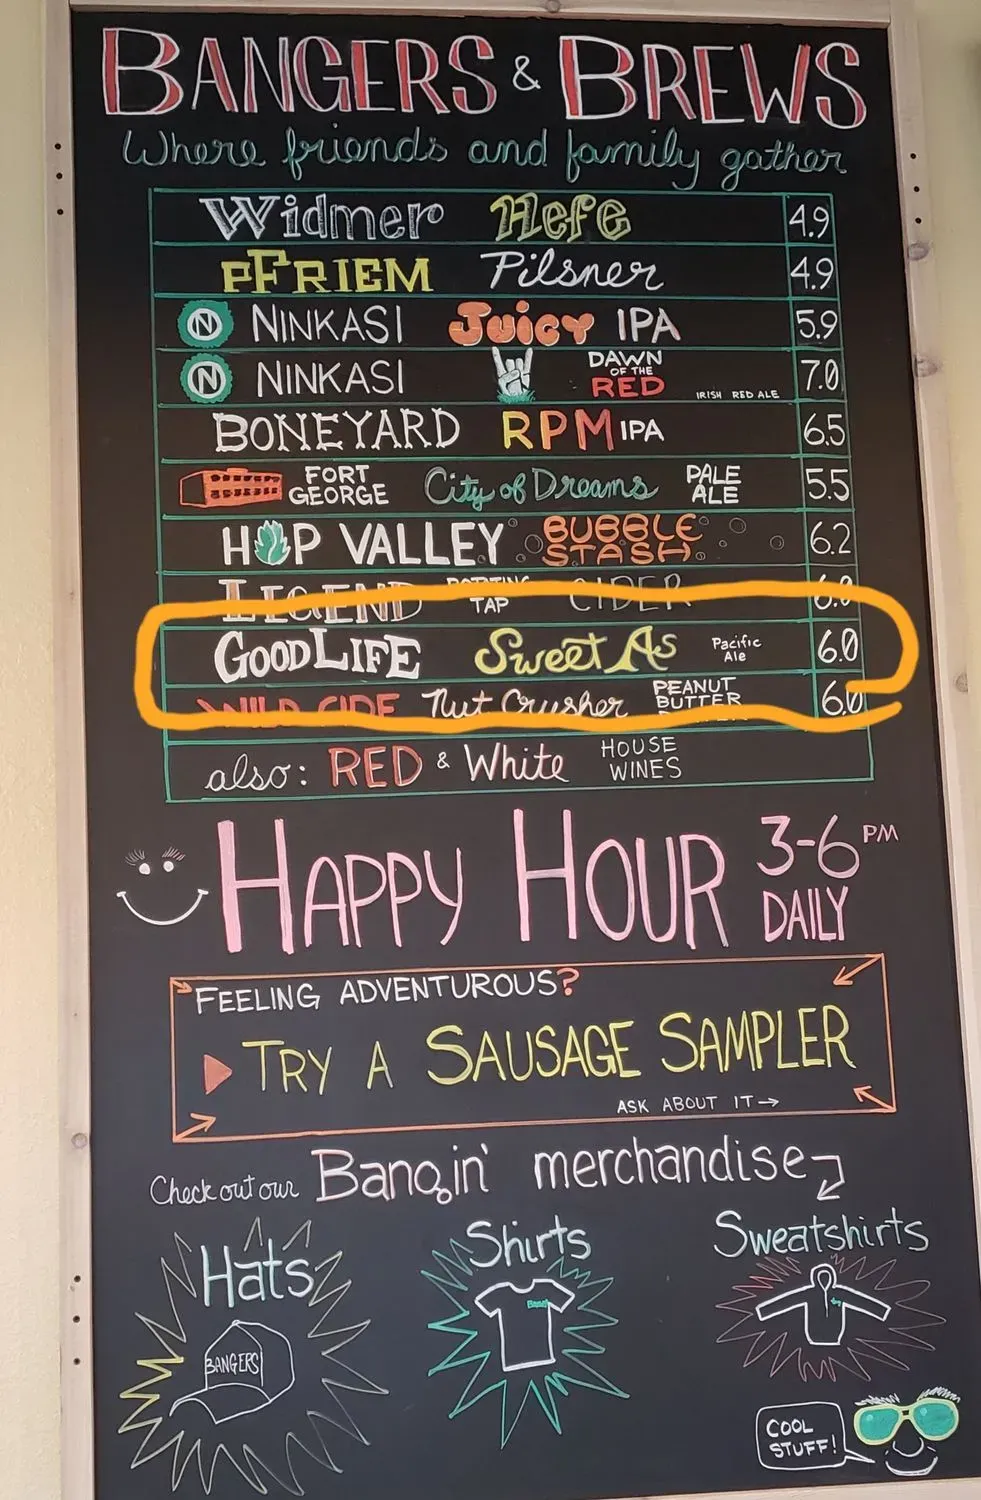 BANGERS & BREWS
Where friends and family gather
Widmer Hefe 4.9
PFRIEM Pilsner 4.9
N NINKASI Juicy IPA 5.9
N NINKASI DAWN OF THE RED IRISH RED ALE 7.0
BONEYARD RPM IPA 6.5
FORT GEORGE City of Dreams PALE ALE 5.5
HOP VALLEY BUBBLE STASH 6.2
LEGEND TAP CIDER 6.0
GOODLIFE Sweet As Pacific Ale 6.0
WILD CIDE Nut Crusher PEANUT BUTTER 6.0
also: RED & White HOUSE WINES
HAPPY HOUR 3-6 PM DAILY
FEELING ADVENTUROUS?
TRY A SAUSAGE SAMPLER
ASK ABOUT IT →
Check out our Bangin' merchandise
Hats
Shirts
Sweatshirts
BANGERS
COOL STUFF!